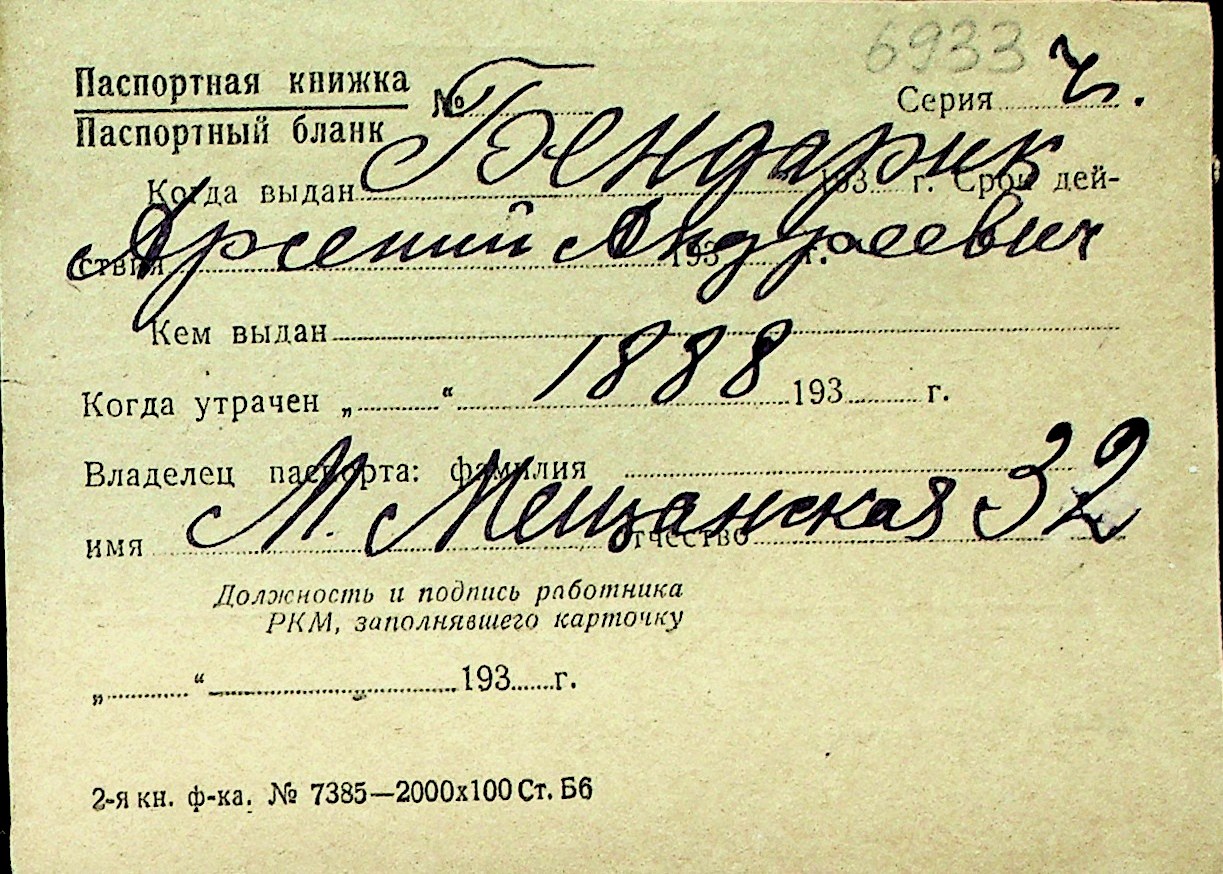 6933
Паспортная книжка
Паспортный бланк
№ Серия ч.
Бендарик
Когда выдан 193 г. Срок дей-
Арсений Андреевич
ствия 193 г.
Кем выдан
1888
Когда утрачен „ “ 193 г.
Владелец паспорта: фамилия
М. Мещанская 32
имя отчество
Должность и подпись работника
РКМ, заполнявшего карточку
„ “ 193 г.
2-я кн. ф-ка. № 7385—2000х100 Ст. Б6